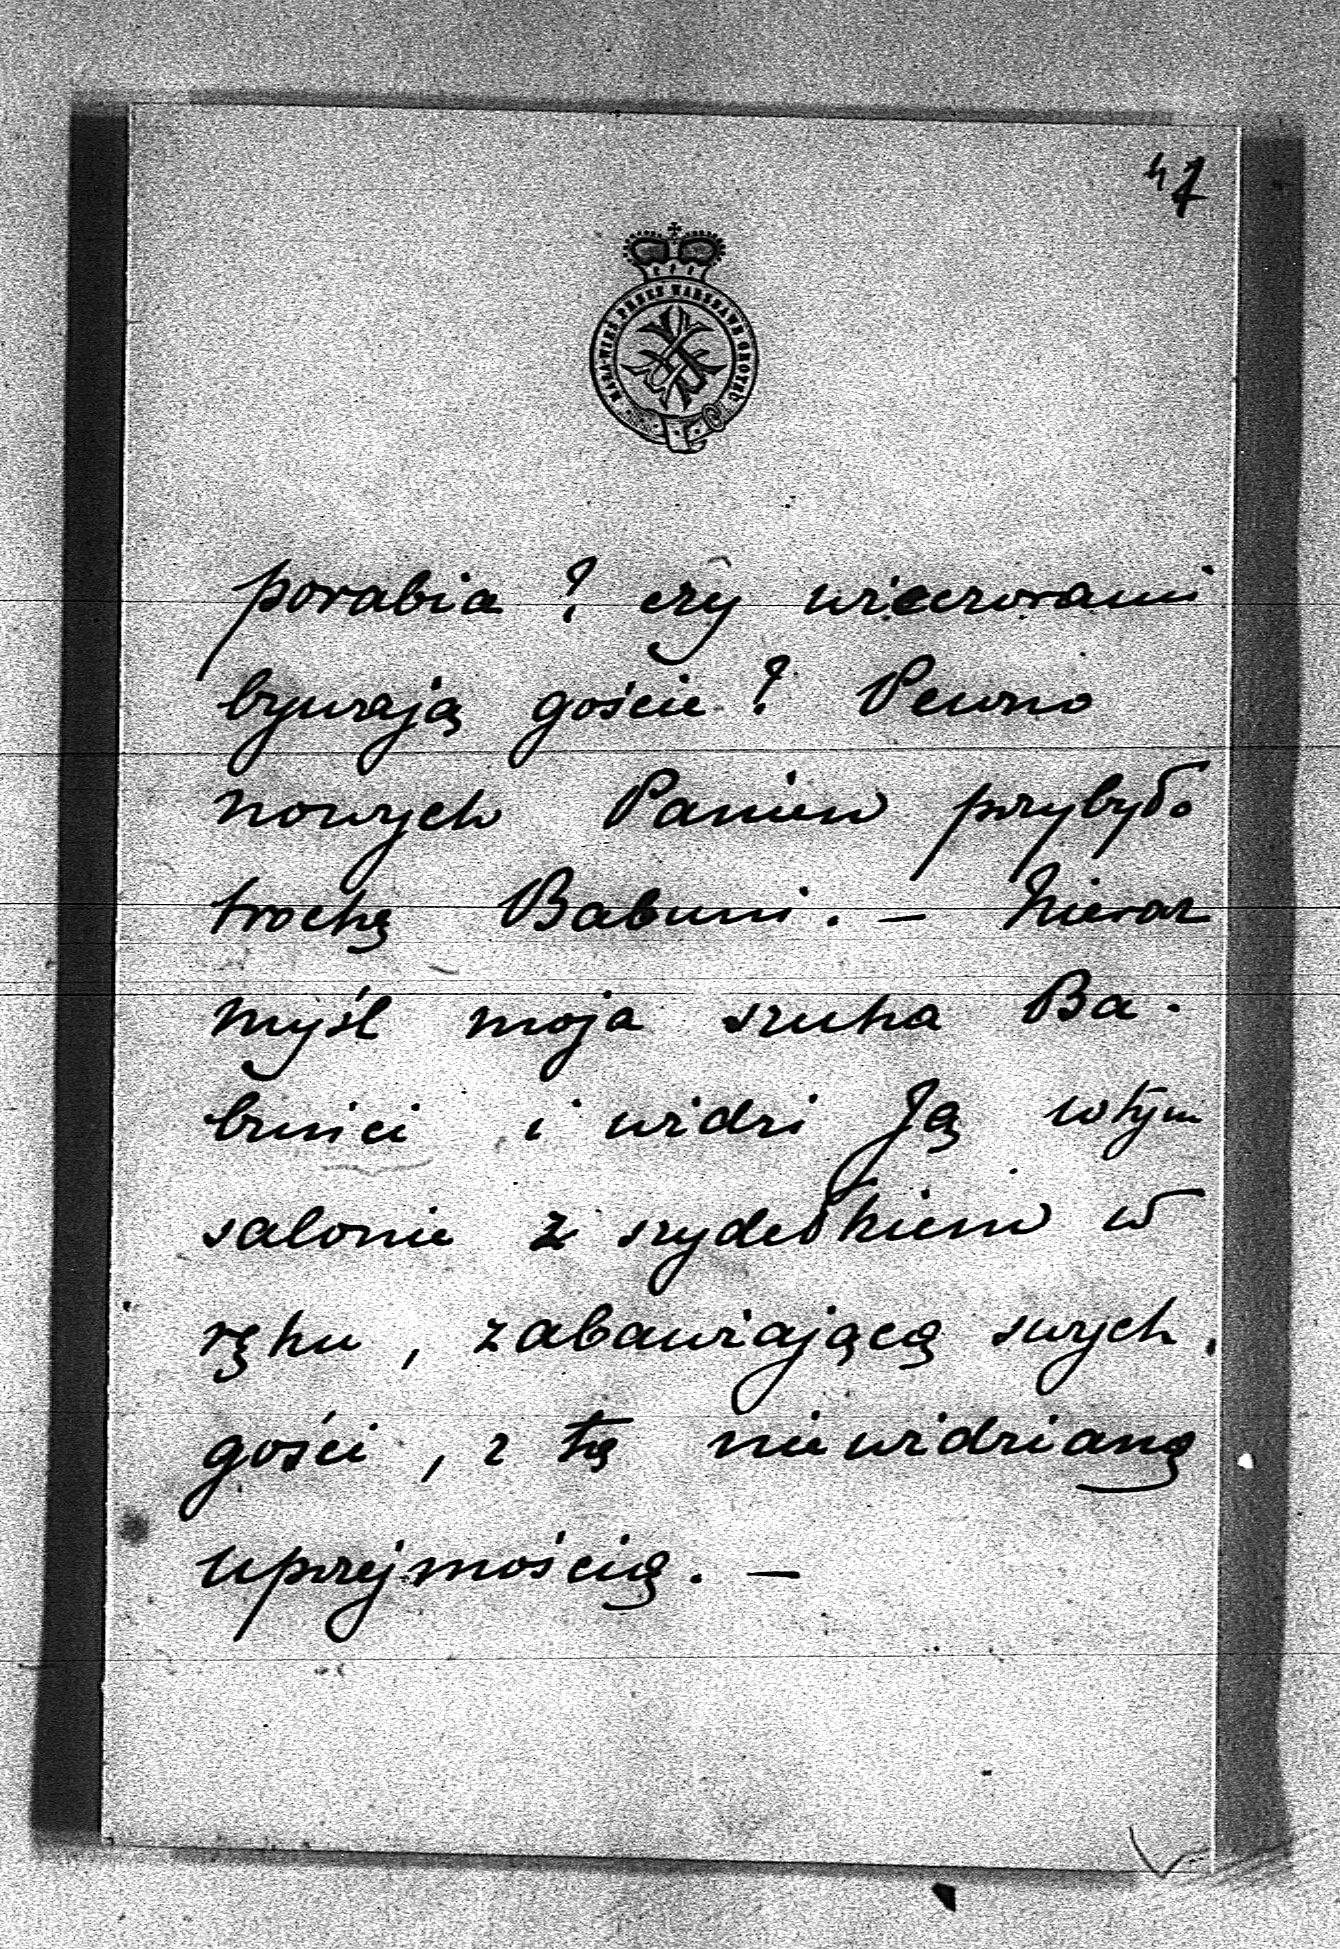 47
MAŁA-WIEŚ PRZEZ WARSZAWĘ GRÓJEC
porabia? czy wieczorami
bywają goście? Pewno
nowych Panien przybyło
trochę Babuni. — Nieraz
myśl moja szuka Ba-
bunici i widzi Ją w tym
salonie z szydełkiem w
ręku, zabawiającą swych
gości, z tą niewidzianą
uprzejmością. —